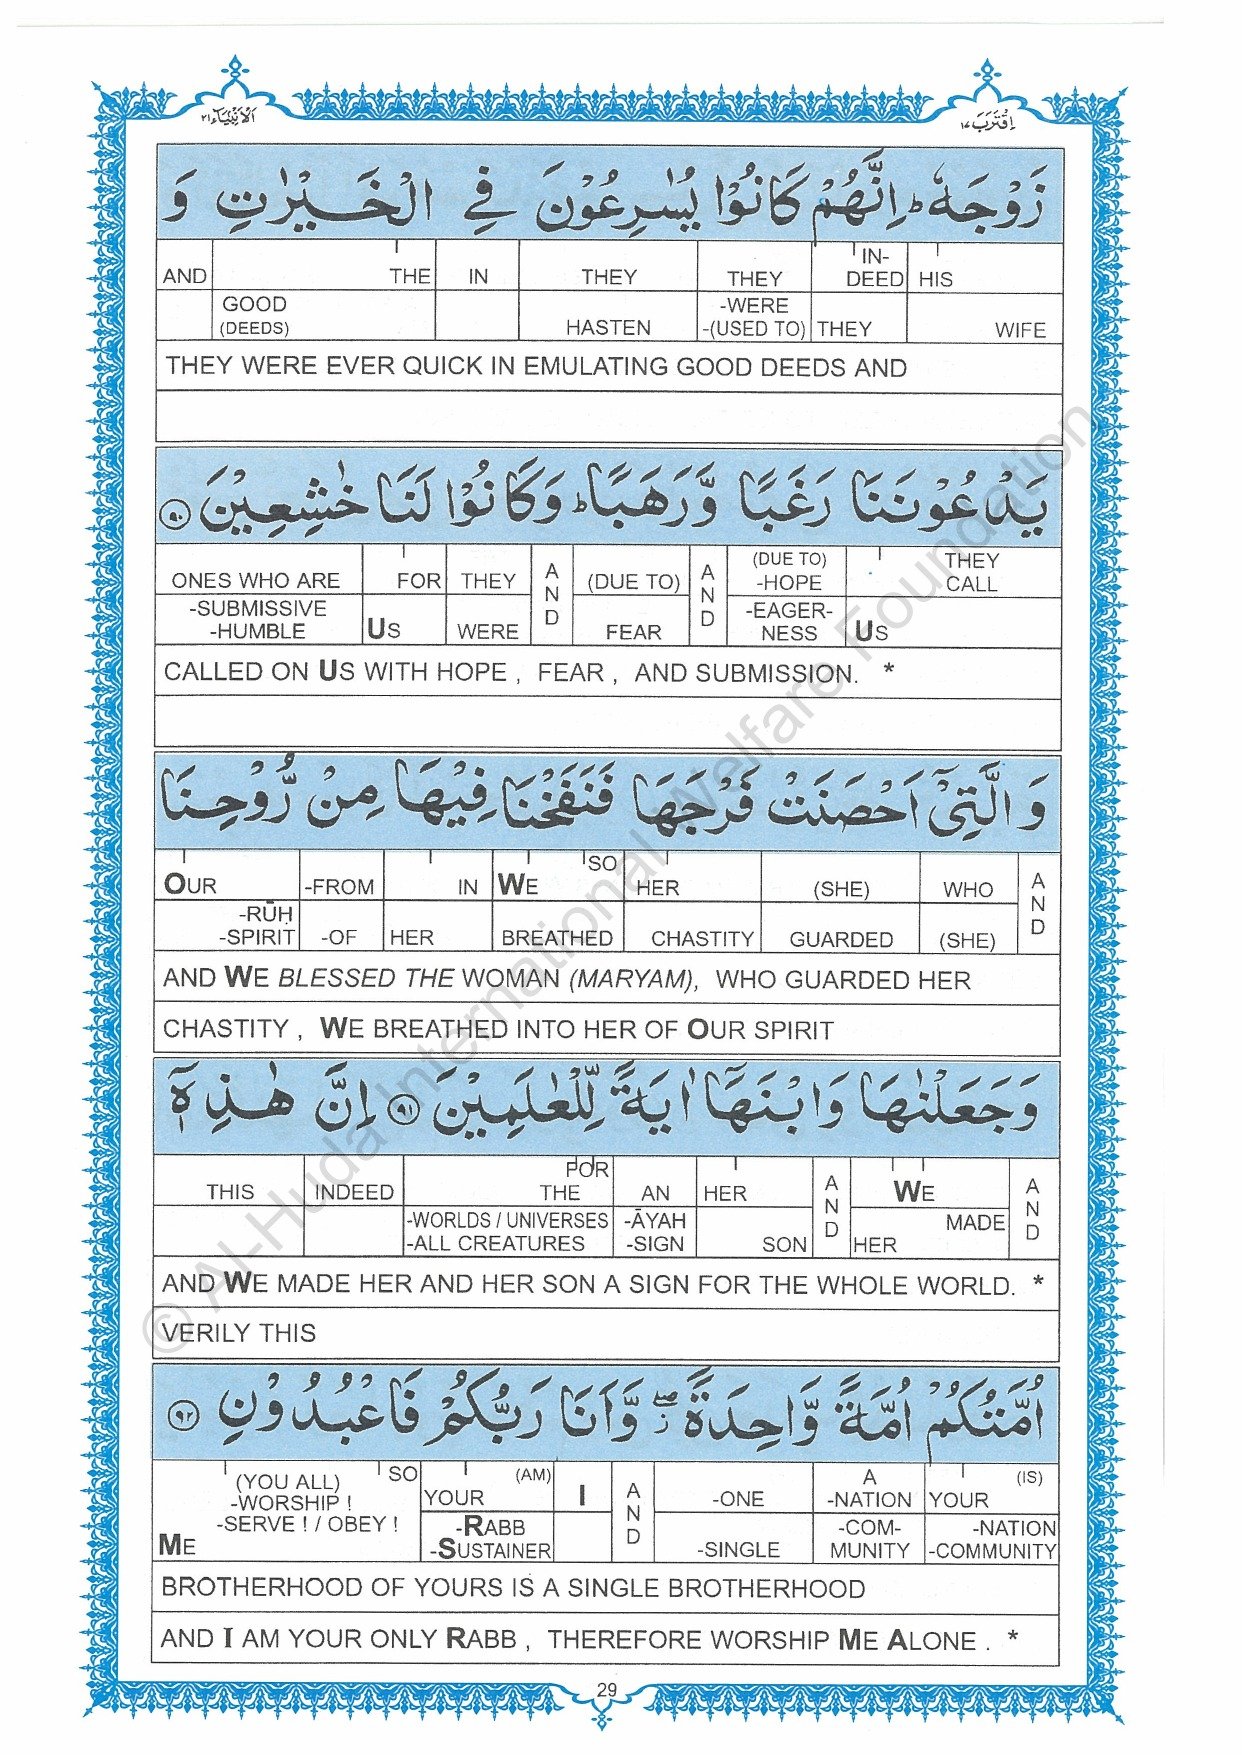 اَلْاَنْۢبِيَآء ٢١
اِقْتَرَبَ ١٧
زَوْجَهٗ ؕ اِنَّهُمْ كَانُوْا يُسٰرِعُوْنَ فِي الْخَيْرٰتِ وَ
AND THE IN THEY THEY IN-DEED HIS
GOOD (DEEDS) HASTEN -WERE -(USED TO) THEY WIFE
THEY WERE EVER QUICK IN EMULATING GOOD DEEDS AND
يَدْعُوْنَنَا رَغَبًا وَّرَهَبًا ؕ وَكَانُوْا لَنَا خٰشِعِيْنَ ٩٠
ONES WHO ARE FOR THEY AND (DUE TO) AND (DUE TO) -HOPE THEY CALL
-SUBMISSIVE -HUMBLE US WERE FEAR -EAGER-NESS US
CALLED ON US WITH HOPE , FEAR , AND SUBMISSION. *
وَالَّتِيْۤ اَحْصَنَتْ فَرْجَهَا فَنَفَخْنَا فِيْهَا مِنْ رُّوْحِنَا
OUR -FROM IN WE SO HER (SHE) WHO AND
-RŪḤ -SPIRIT -OF HER BREATHED CHASTITY GUARDED (SHE)
AND WE BLESSED THE WOMAN (MARYAM), WHO GUARDED HER
CHASTITY , WE BREATHED INTO HER OF OUR SPIRIT
وَجَعَلْنٰهَا وَابْنَهَاۤ اٰيَةً لِّلْعٰلَمِيْنَ ٩١ اِنَّ هٰذِهٖۤ
THIS INDEED FOR THE AN HER AND WE AND
-WORLDS / UNIVERSES -ALL CREATURES -ĀYAH -SIGN SON MADE HER
AND WE MADE HER AND HER SON A SIGN FOR THE WHOLE WORLD. *
VERILY THIS
اُمَّتُكُمْ اُمَّةً وَّاحِدَةً ۖ وَّاَنَا رَبُّكُمْ فَاعْبُدُوْنِ ٩٢
(YOU ALL) -WORSHIP ! SO YOUR (AM) I AND -ONE A -NATION YOUR (IS)
ME -SERVE ! / OBEY ! -RABB -SUSTAINER -SINGLE -COM-MUNITY -NATION -COMMUNITY
BROTHERHOOD OF YOURS IS A SINGLE BROTHERHOOD
AND I AM YOUR ONLY RABB , THEREFORE WORSHIP ME ALONE . *
29
© Al-Huda International Welfare Foundation